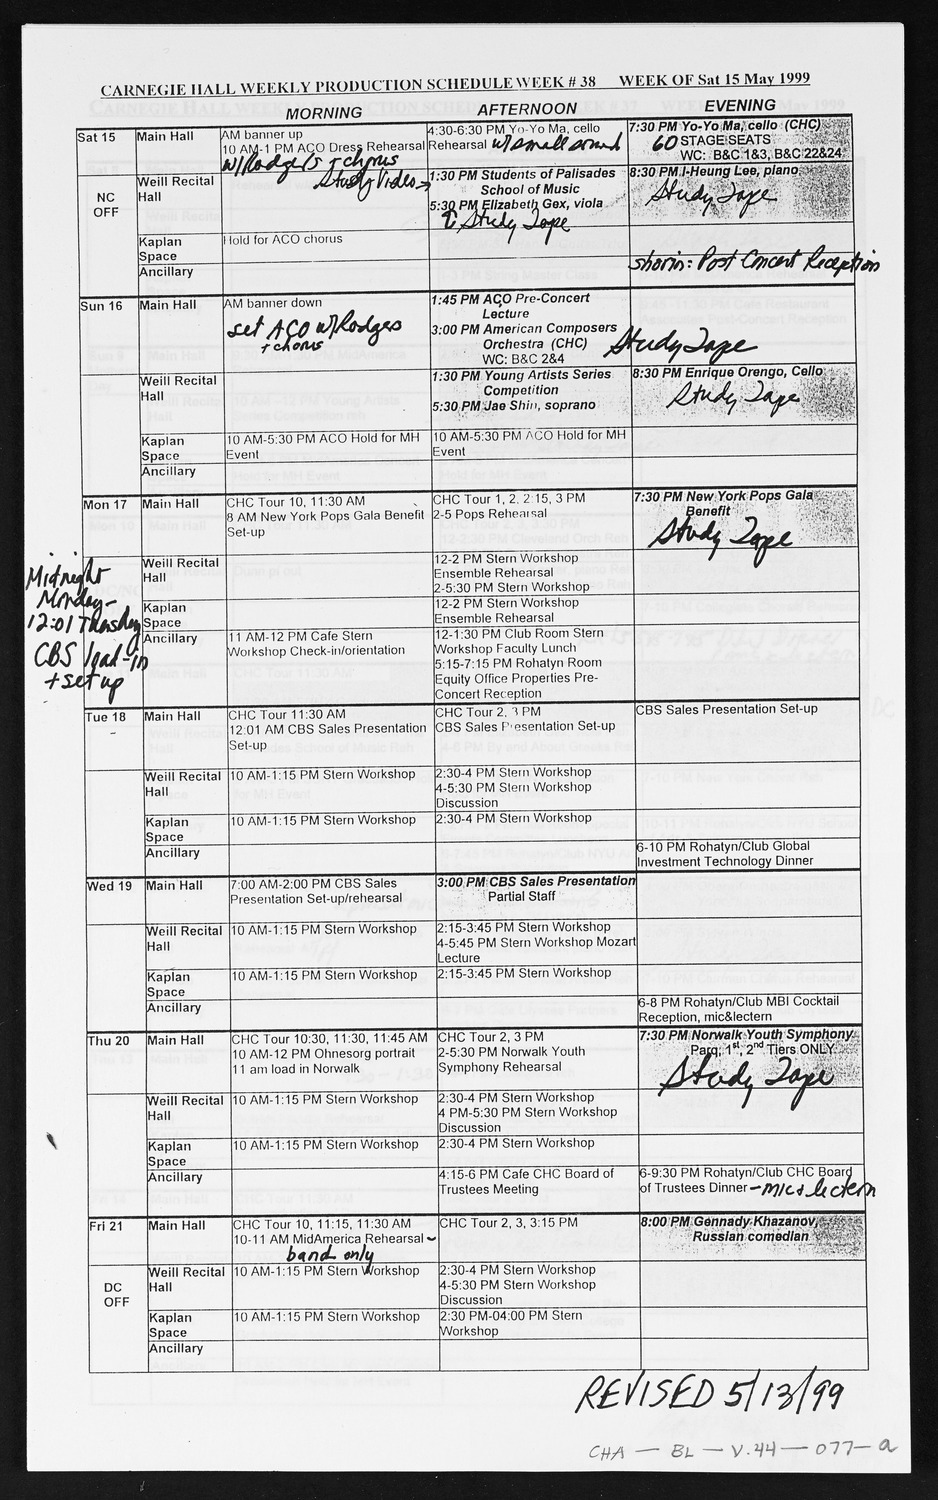 CARNEGIE HALL WEEKLY PRODUCTION SCHEDULE WEEK # 38 WEEK OF Sat 15 May 1999
MORNING AFTERNOON EVENING
Sat 15
NC
OFF
Main Hall
AM banner up
10 AM-1 PM ACO Dress Rehearsal
w/Rodgers + chorus
4:30-6:30 PM Yo-Yo Ma, cello
Rehearsal w/small sound
7:30 PM Yo-Yo Ma, cello (CHC)
60 STAGE SEATS
WC: B&C 1&3, B&C 22&24
Weill Recital
Hall
Study Video →
1:30 PM Students of Palisades
School of Music
5:30 PM Elizabeth Gex, viola
Study Tape
8:30 PM I-Heung Lee, piano
Study Tape
Kaplan
Space
Hold for ACO chorus
Ancillary
shorin: Post Concert Reception
Sun 16
Main Hall
AM banner down
set ACO w/Rodges
+ chorus
1:45 PM ACO Pre-Concert
Lecture
3:00 PM American Composers
Orchestra (CHC)
WC: B&C 2&4
Study Tape
Weill Recital
Hall
1:30 PM Young Artists Series
Competition
5:30 PM Jae Shin, soprano
8:30 PM Enrique Orengo, Cello
Study Tape
Kaplan
Space
10 AM-5:30 PM ACO Hold for MH
Event
10 AM-5:30 PM ACO Hold for MH
Event
Ancillary
Mon 17
Main Hall
CHC Tour 10, 11:30 AM
8 AM New York Pops Gala Benefit
Set-up
CHC Tour 1, 2, 2:15, 3 PM
2-5 Pops Rehearsal
7:30 PM New York Pops Gala
Benefit
Study Tape
Midnight
Monday-
12:01 Tuesday
CBS load-in
+ set up
Weill Recital
Hall
12-2 PM Stern Workshop
Ensemble Rehearsal
2-5:30 PM Stern Workshop
Kaplan
Space
12-2 PM Stern Workshop
Ensemble Rehearsal
Ancillary
11 AM-12 PM Cafe Stern
Workshop Check-in/orientation
12-1:30 PM Club Room Stern
Workshop Faculty Lunch
5:15-7:15 PM Rohatyn Room
Equity Office Properties Pre-
Concert Reception
Tue 18
Main Hall
CHC Tour 11:30 AM
12:01 AM CBS Sales Presentation
Set-up
CHC Tour 2, 3 PM
CBS Sales Presentation Set-up
CBS Sales Presentation Set-up
Weill Recital
Hall
10 AM-1:15 PM Stern Workshop
2:30-4 PM Stern Workshop
4-5:30 PM Stern Workshop
Discussion
Kaplan
Space
10 AM-1:15 PM Stern Workshop
2:30-4 PM Stern Workshop
Ancillary
6-10 PM Rohatyn/Club Global
Investment Technology Dinner
Wed 19
Main Hall
7:00 AM-2:00 PM CBS Sales
Presentation Set-up/rehearsal
3:00 PM CBS Sales Presentation
Partial Staff
Weill Recital
Hall
10 AM-1:15 PM Stern Workshop
2:15-3:45 PM Stern Workshop
4-5:45 PM Stern Workshop Mozart
Lecture
Kaplan
Space
10 AM-1:15 PM Stern Workshop
2:15-3:45 PM Stern Workshop
Ancillary
6-8 PM Rohatyn/Club MBI Cocktail
Reception, mic&lectern
Thu 20
Main Hall
CHC Tour 10:30, 11:30, 11:45 AM
10 AM-12 PM Ohnesorg portrait
11 am load in Norwalk
CHC Tour 2, 3 PM
2-5:30 PM Norwalk Youth
Symphony Rehearsal
7:30 PM Norwalk Youth Symphony
Parq, 1st, 2nd Tiers ONLY
Study Tape
Weill Recital
Hall
10 AM-1:15 PM Stern Workshop
2:30-4 PM Stern Workshop
4 PM-5:30 PM Stern Workshop
Discussion
Kaplan
Space
10 AM-1:15 PM Stern Workshop
2:30-4 PM Stern Workshop
Ancillary
4:15-6 PM Cafe CHC Board of
Trustees Meeting
6-9:30 PM Rohatyn/Club CHC Board
of Trustees Dinner – mic & lectern
Fri 21
DC
OFF
Main Hall
CHC Tour 10, 11:15, 11:30 AM
10-11 AM MidAmerica Rehearsal –
band only
CHC Tour 2, 3, 3:15 PM
8:00 PM Gennady Khazanov,
Russian comedian
Weill Recital
Hall
10 AM-1:15 PM Stern Workshop
2:30-4 PM Stern Workshop
4-5:30 PM Stern Workshop
Discussion
Kaplan
Space
10 AM-1:15 PM Stern Workshop
2:30 PM-04:00 PM Stern
Workshop
Ancillary
REVISED 5/13/99
CHA – BL – V.44 – 077 – a